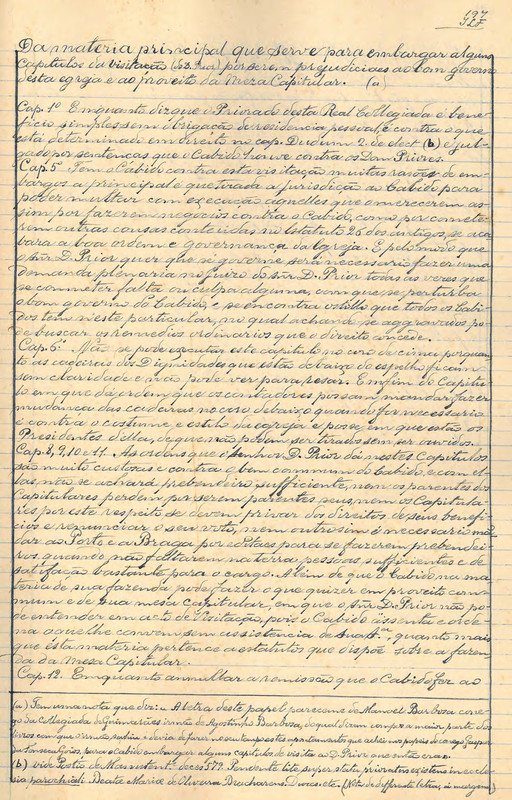 197
Da materia principal que serve para embargar alguns
capitulos da visitação (sñr. Rui) por serem prejudiciaes ao bom governo
desta egreja e ao proveito da Meza Capitular. (a)
Cap. 1º Emquanto diz que o Priorado desta Real Collegiada é bene-
ficio simples sem obrigação de residencia pessoal, é contra o que
está determinado em direito no cap. Dudum 2. de elect (b) e jul-
gado por sentenças que o Cabido houve contra os Dom Priores.
Cap. 5 Tem o Cabido contra esta visitação muitas rasões de em-
bargos a principal é que tirada a jurisdição ao Cabido para
poder multar com execução aquelles que o merecerem as-
sim por fazerem negocios contra o Cabido, como por comette-
rem outras cousas conteudas no Estatuto 26 dos antigos, se aca-
bara a boa ordem e governança da Igreja. E pelo modo que
o Snr. D. Prior quer que se governe será necessario fazer uma
demanda plenaria no juizo do Snr. D. Prior todas as veses que
se commeter falta ou culpa alguma, com que se perturba
o bom governo do Cabido, e se encontra o stillo que todos os Cabi-
dos tem n'este particular, no qual achando-se aggravados po-
de buscar os remedios ordinarios que o direito concede.
Cap. 6º Não se pode executar este capitulo no coro de cima porquan-
to as cadeiras das Dignidades que estão debaixo do espelho ficam
sem claridade e não pode ver para resar. Emfim do Capitu-
lo em que dá ordem que os cantadores possam mandar fazer
mudança das cadeiras no coro debaixo quando for necessario
é contra o costume e estilo da egreja e posse em que estão os
Presidentes della, de que não podem ser tirados sem ser ouvidos.
Cap. 8, 9, 10 e 11. As ordens que o Senhor D. Prior dá nestes Capitulos
são muito custosas e contra o bem commum do Cabido, e com el-
las não se achará prebendeiro sufficiente, nem os parentes dos
Capitulares perdem por serem parentes seus, nem os Capitula-
res por este respeito se devem privar dos direitos de seus benefi-
cios e renunciar o seu voto, nem outrosim é necessario man-
dar ao Porto e a Braga pôr editaes para se fazerem prebendei-
ros, quando não faltarem na terra pessoas sufficientes e de
satisfação bastante para o cargo. Alem de que o Cabido na ma-
teria de sua fazenda pode fazer o que quizer em proveito com-
mum e de sua mesa Capitular, em que o Snr. D. Prior não po-
de entender em acto de Visitação, pois o Cabido assenta e orde-
na o que lhe convem sem assistencia de Sua Snrª, quanto mais
que esta materia pertence a estatutos que dispõe sobre a fazen-
da da Mesa Capitular.
Cap. 12. Emquanto annullar a remissão que o Cabido fez ao
(a) Tem uma nota que diz: A letra deste papel parece me de Manoel Barbosa cone-
go da Collegiada de Guimarães irmão de Agostinho Barbosa, do qual dizem compoz a maior parte dos
livros com que o irmão
(b) vide Posthio de Manutent.